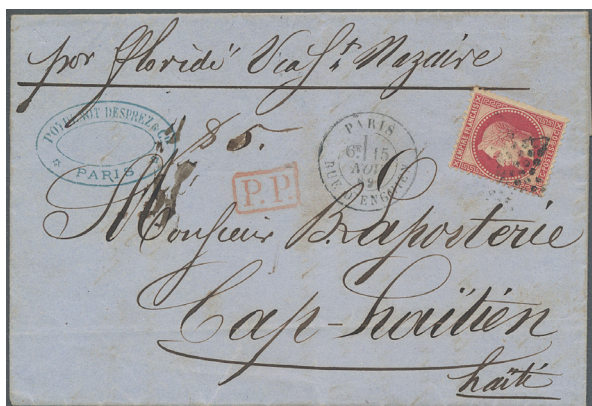 par floride Via St Nazaire
DESPREZ & Cie
PARIS
185.
PARIS
6E 15
RUE D'ENGHIEN
P.P.
EMPIRE FRANÇAIS
Monsieur B. Laposterie
Cap-haïtien
haïti